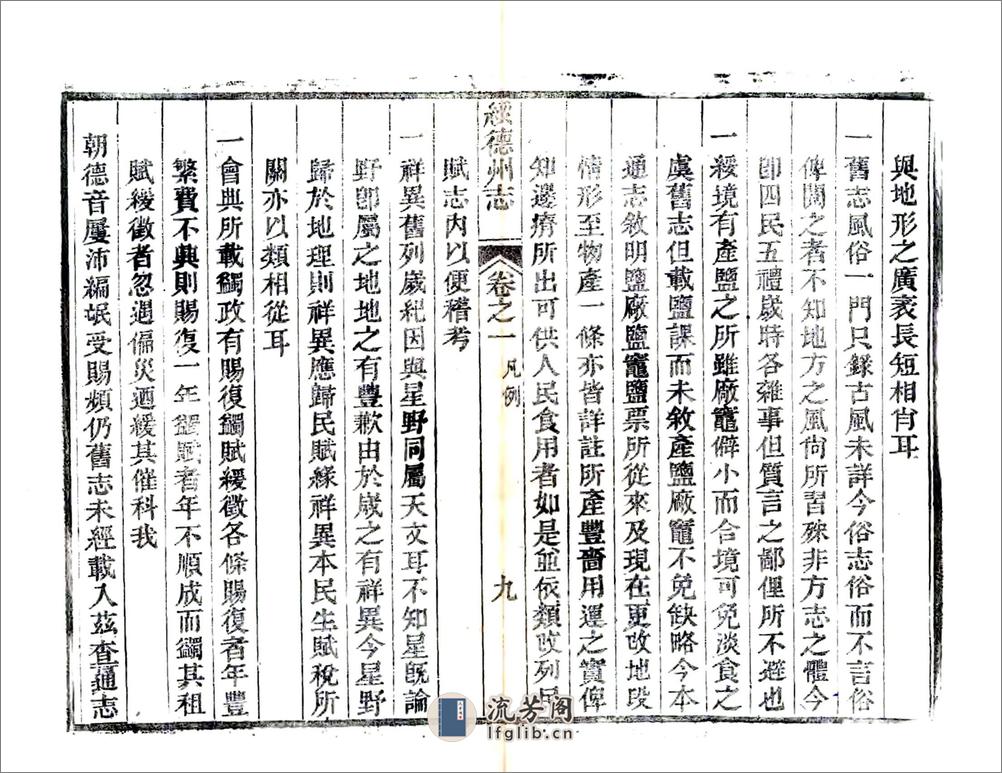 與地形之廣袤長短相肖耳
一舊志風俗一門只錄古風未詳今俗志俗而不言俗
俾閱之者不知地方之風尚所習殊非方志之體今
卽四民五禮歲時各雜事但質言之鄙俚所不避也
一綏境有產鹽之所雖廠竈僻小而合境可免淡食之
虞舊志但載鹽課而未敘產鹽廠竈不免缺略今本
通志敘明鹽廠鹽竈鹽票所從來及現在更改地段
情形至物產一條亦皆詳註所產豐嗇用運之實俾
知邊瘠所出可供人民食用者如是並依類改列民
賦志內以便稽考
綏德州志
卷之一
凡例
九
一祥異舊列歲紀因與星野同屬天文耳不知星旣論
野卽屬之地地之有豐歉由於歲之有祥異今星野
歸於地理則祥異應歸民賦緣祥異本民生賦稅所
關亦以類相從耳
一會典所載蠲政有賜復蠲賦緩徵各條賜復者年豐
繁費不興則賜復一年蠲賦者年不順成而蠲其租
賦緩徵者忽遇偏災迺緩其催科我
朝德音屢沛編氓受賜頻仍舊志未經載入茲查通志
流芳阁
lfglib.cn